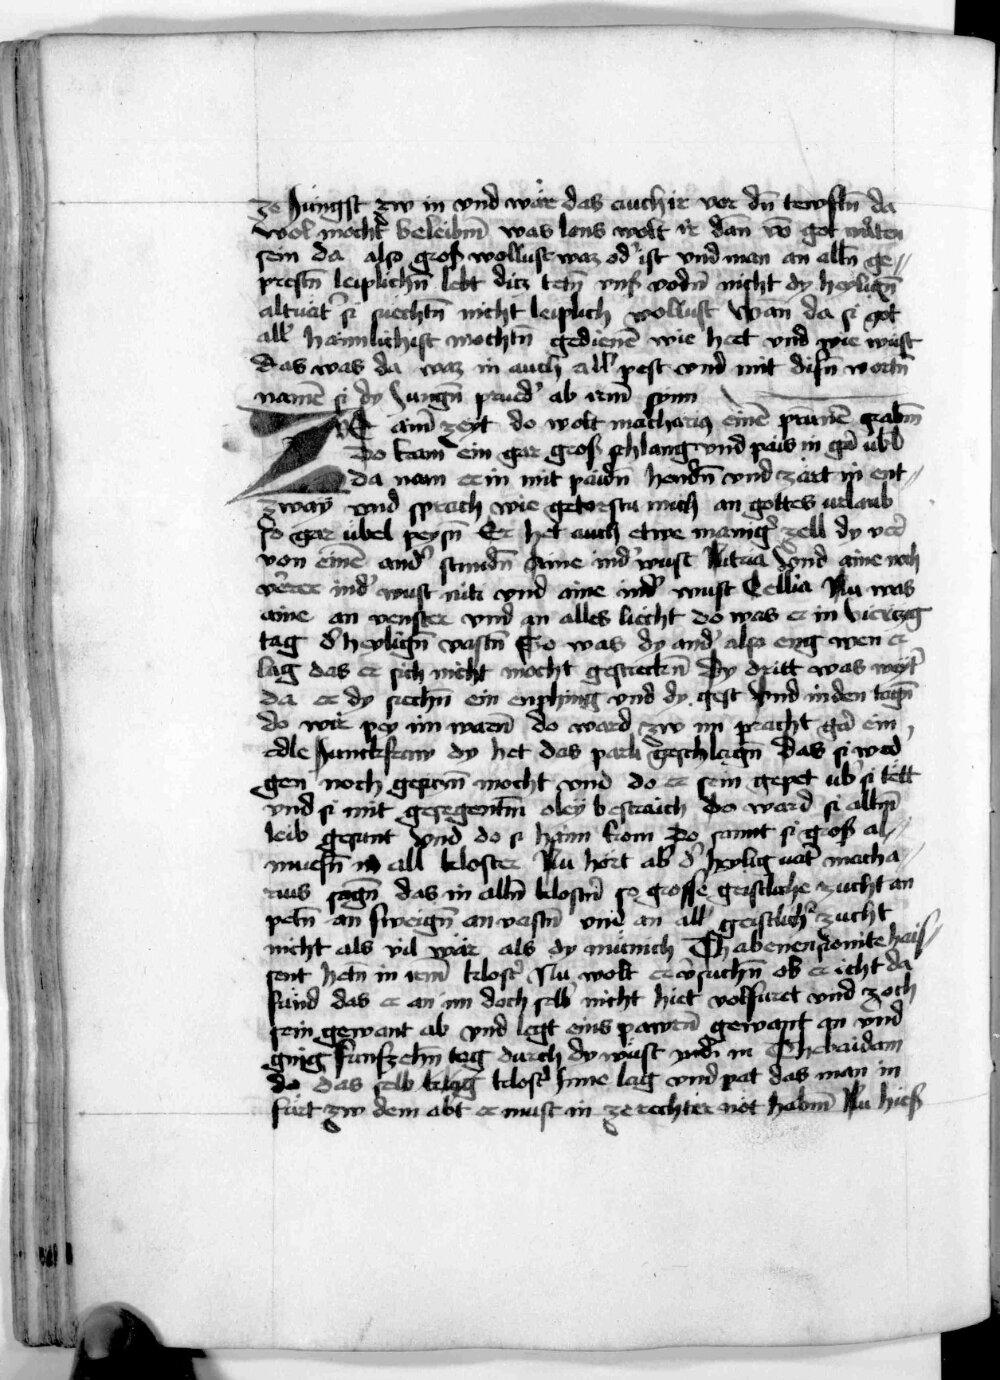 ze Jungst zw in vnd wär das auch ir vor dn̄ tewfln̄ da
wol möcht beleibm̄ was lons wolt ir dan̄ vō got
sein da also groß wollust waz od' ist vnd man an alln̄ ge„
prestn̄ leiplichn̄ lebt ditz tetn̄ vnß vodn̄ nicht dy heylign̄
altuät' si suechtn̄ nicht leiplich wollust Wan̄ da si got
all' haimlichist mochtn̄ gedienē wie hert vnd wie wüst
das was da waz in auch all' pest vnd mit disn̄ wortn̄
namē si dy Jungn̄ prued' ab irm̄ synn
ZE aim̄ zeyt do wolt macharius einē prunnē grabm̄
Do kam ein gar groß schlang vnd pais in gar̄ übl
da nam er in mit paidn̄ hendn̄ vnd zärt in ent„
zway vnd sprach wie getorstu mich an gottes vrlaub
so gar übel peysn̄ Er het auch etwe manig' zell dy verr̄
von einē and' stundn̄ Aine ind' wust Nitria Vnd aine noch
verrer ind' wust niti vnd aine ind' wust Cellia Nu was
aine an venster vnd an alles liecht do was er in viertzig
tag d' heylign̄ vastn̄ So was dy and' also eng wen er
lag das er sich nicht mocht gestreckn̄ Dy dritt was weyt'
da er dy siechn̄ ein enphing vnd dy gest Vnd in den tagn̄
do wir pey im warn̄ do ward zw im pracht gar̄ ein
edle Junckfraw dy het das parli geschlagn̄ Das si wed'
gen noch geparn̄ mocht vnd do er sein gepet üb' si tett
vnd si mit gesegentm̄ oley bestraich do ward si allm̄
leib gesunt Vnd do si haim kom Do sannt si groß al„
muesn̄ in all kloster Nu hört ab' d' heylig uat' macha„
rius sagn̄ das in alln̄ klostn̄ so grosse geistliche zucht an
petn̄ an sweign̄ an vastn̄ vnd an all' geistlich' zucht
nicht als vil wär als dy münich Thabenensionite haiß„
sent hetn̄ in irm̄ klost' Nu wolt er v'suchn̄ ob er icht da
fund das er an im doch selb' nicht hiet volfuret vnd zoch
sein gewant ab vnd legt eins pawrn̄ gewant an vnd
gieng funfzehn̄ tag durch dy wüst vntz in Thebaidam
do das selb klost' Inne lag vnd pat das man in
fürt zw dem abt er must in ze rechter not habm̄ Nu hieß